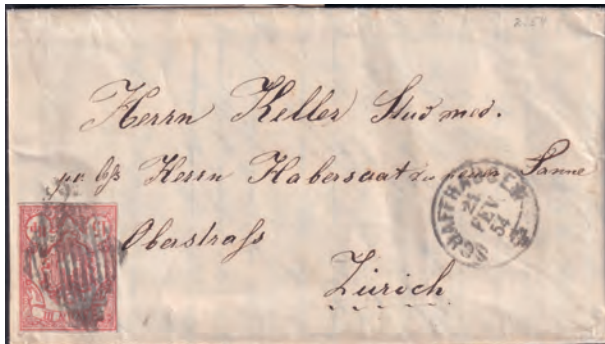 2.54
Herrn Keller Stud med.
Herrn Habersaat zu neuen Tanne
Oberstrass
Zürich
SCHAFFHAUSEN
21
FEV
54